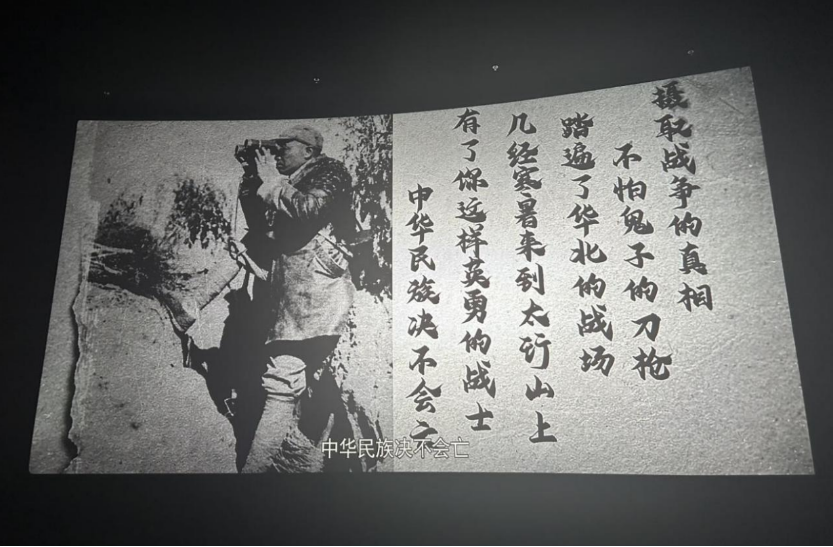 摄取战争的真相
不怕鬼子的刀枪
踏遍了华北的战场
几经寒暑来到太行山上
有了你这样英勇的战士
中华民族决不会亡
中华民族决不会亡